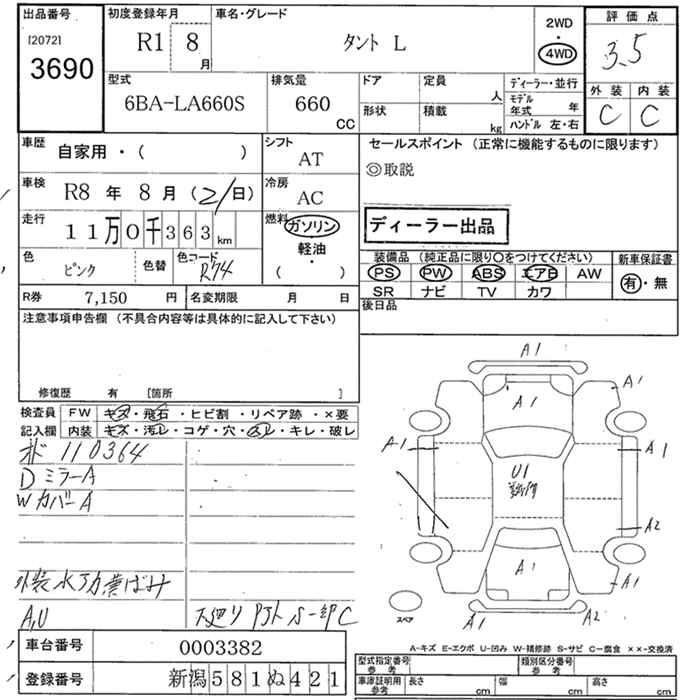 出品番号
[2072]
3690
初度登録年月
R1 8
月
車名・グレード
タント L
2WD
・
4WD
評価点
3.5
外装 内装
C C
型式
6BA-LA660S
排気量
660
CC
ドア
定員
人
形状
積載
kg
ディーラー・並行
モデル
年式 年
ハンドル 左・右
車歴
自家用・( )
シフト
AT
セールスポイント (正常に機能するものに限ります)
◎取説
車検
R8 年 8 月 (21日)
冷房
AC
走行
11万0千363km
燃料
ガソリン
軽油
・
( )
ディーラー出品
色
ピンク
色替
色コード
R74
装備品 (純正品に限り○をつけてください)
PS PW ABS エアB AW
SR ナビ TV カワ
新車保証書
有・無
R券 7,150 円
名変期限 月 日
後日品
注意事項申告欄 (不具合内容等は具体的に記入して下さい)
修復歴 有 [箇所 ]
検査員 FW キズ・飛石・ヒビ割・リペア跡・×要
記入欄 内装 キズ・汚レ・コゲ・穴・スレ・キレ・破レ
110364
DミラーA
WカバーA
A,U
下廻り S一部C
A1
A1
A1
A1
A1
U1
A2
A1
A1
A2
スペア
車台番号 0003382
登録番号 新潟581ぬ421
A-キズ E-エクボ U-凹み W-補修跡 S-サビ C-腐食 ××-交換済
型式指定番号
参考
類別区分番号
参考
車庫証明用
参考
長さ cm
幅 cm
高さ cm